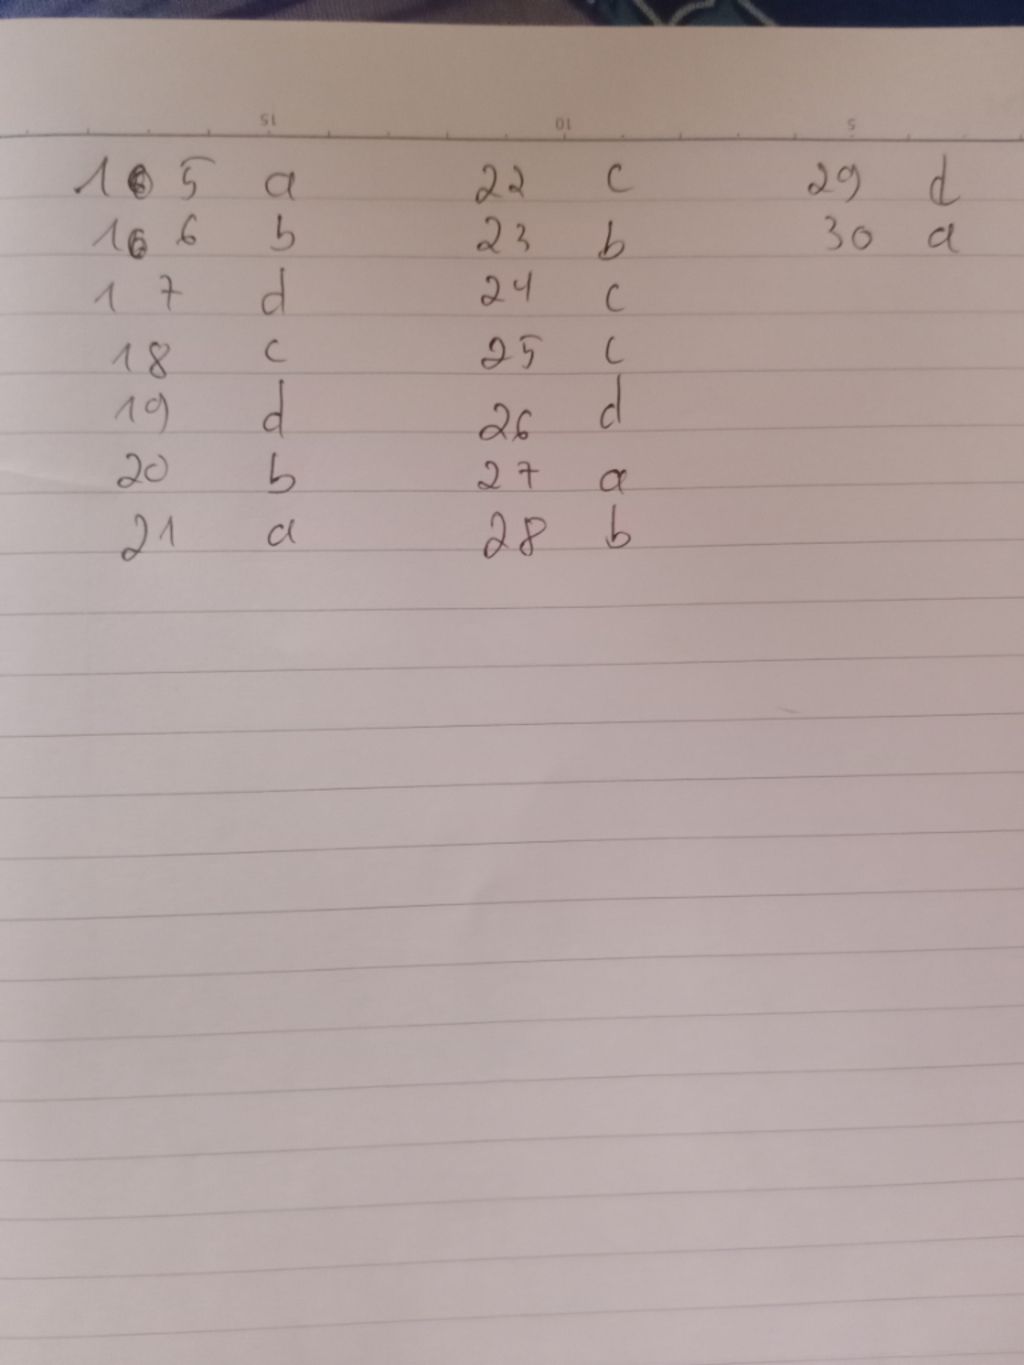 15 10 5
15 a
16 b
17 d
18 c
19 d
20 b
21 a
22 c
23 b
24 c
25 c
26 d
27 a
28 b
29 d
30 a